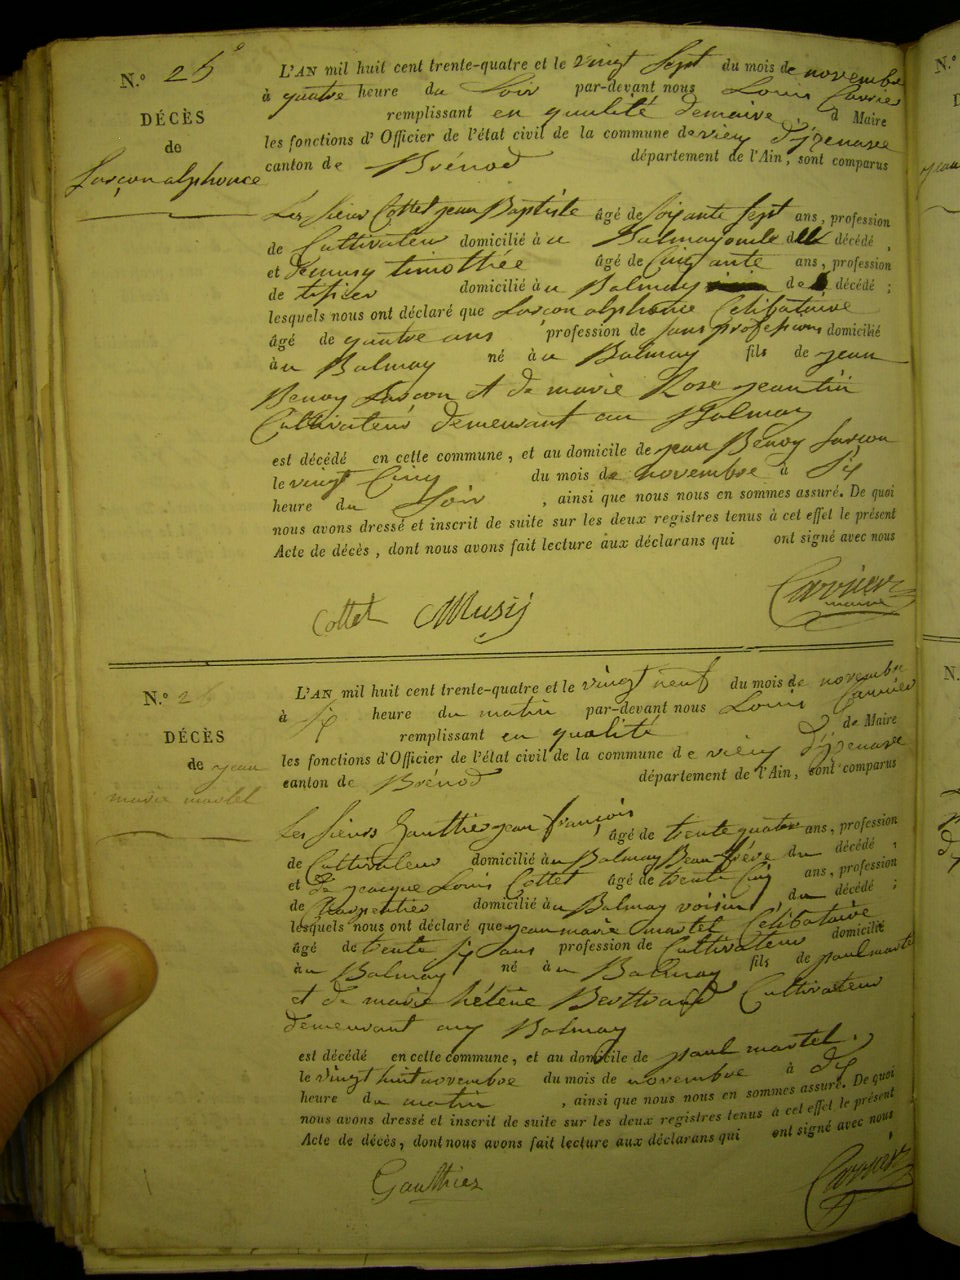 N.° 25
DÉCÈS
de
Larçon alphonce
L'AN mil huit cent trente-quatre et le vingt Sept du mois de novembre
à quatre heure du Soir par-devant nous Louis Carrier
remplissant en qualité de maire d Maire
les fonctions d'Officier de l'état civil de la commune de vieu d'izenave
canton de Brénod département de l'Ain, sont comparus
Les sieurs Cottet jean Baptiste âgé de soixante sept ans, profession
de Cultivateur domicilié à u Balmay décédé,
et timothée âgé de Cinquante ans, profession
de domicilié à u Balmay de décédé ;
lesquels nous ont déclaré que Larçon alphonse Celibataire
âgé de quatre ans profession de sans profession domicilié
à u Balmay né à u Balmay fils de jean
Benoy Larçon et de marie Rose jeantin
Cultivateurs demeurant au Balmay
est décédé en cette commune, et au domicile de jean Benoy Larçon
le vingt Cinq du mois de novembre à Six
heure du Soir , ainsi que nous nous en sommes assuré. De quoi
nous avons dressé et inscrit de suite sur les deux registres tenus à cet effet le présent
Acte de décès, dont nous avons fait lecture aux déclarans qui ont signé avec nous
Cottet Musy Carrier
maire
N.° 26
DÉCÈS
de jean
marie martel
L'AN mil huit cent trente-quatre et le vingt neuf du mois de novembre
à Six heure du matin par-devant nous Louis Carrier
remplissant en qualité d de Maire
les fonctions d'Officier de l'état civil de la commune de vieu d'izenave
canton de Brénod département de l'Ain, sont comparus
Les sieurs Gauthier jean françois âgé de trente quatre ans, profession
de Cultivateur domicilié à u Balmay Beau frère du décédé,
et de jacque Louis Cottet âgé de trente Cinq ans, profession
de Charpentier domicilié à u Balmay voisin du décédé ;
lesquels nous ont déclaré que jean marie martel Célibataire
âgé de trente six ans profession de Cultivateur domicilié
à u Balmay né à u Balmay fils de paul martel
et de marie hélène Berttrand Cultivateur
demeurant au Balmay
est décédé en cette commune, et au domicile de paul martel.
le vingt huit novembre du mois de novembre à dix
heure du matin , ainsi que nous nous en sommes assuré. De quoi
nous avons dressé et inscrit de suite sur les deux registres tenus à cet effet le présent
Acte de décès, dont nous avons fait lecture aux déclarans qui ont signé avec nous
Gauthier Carrier